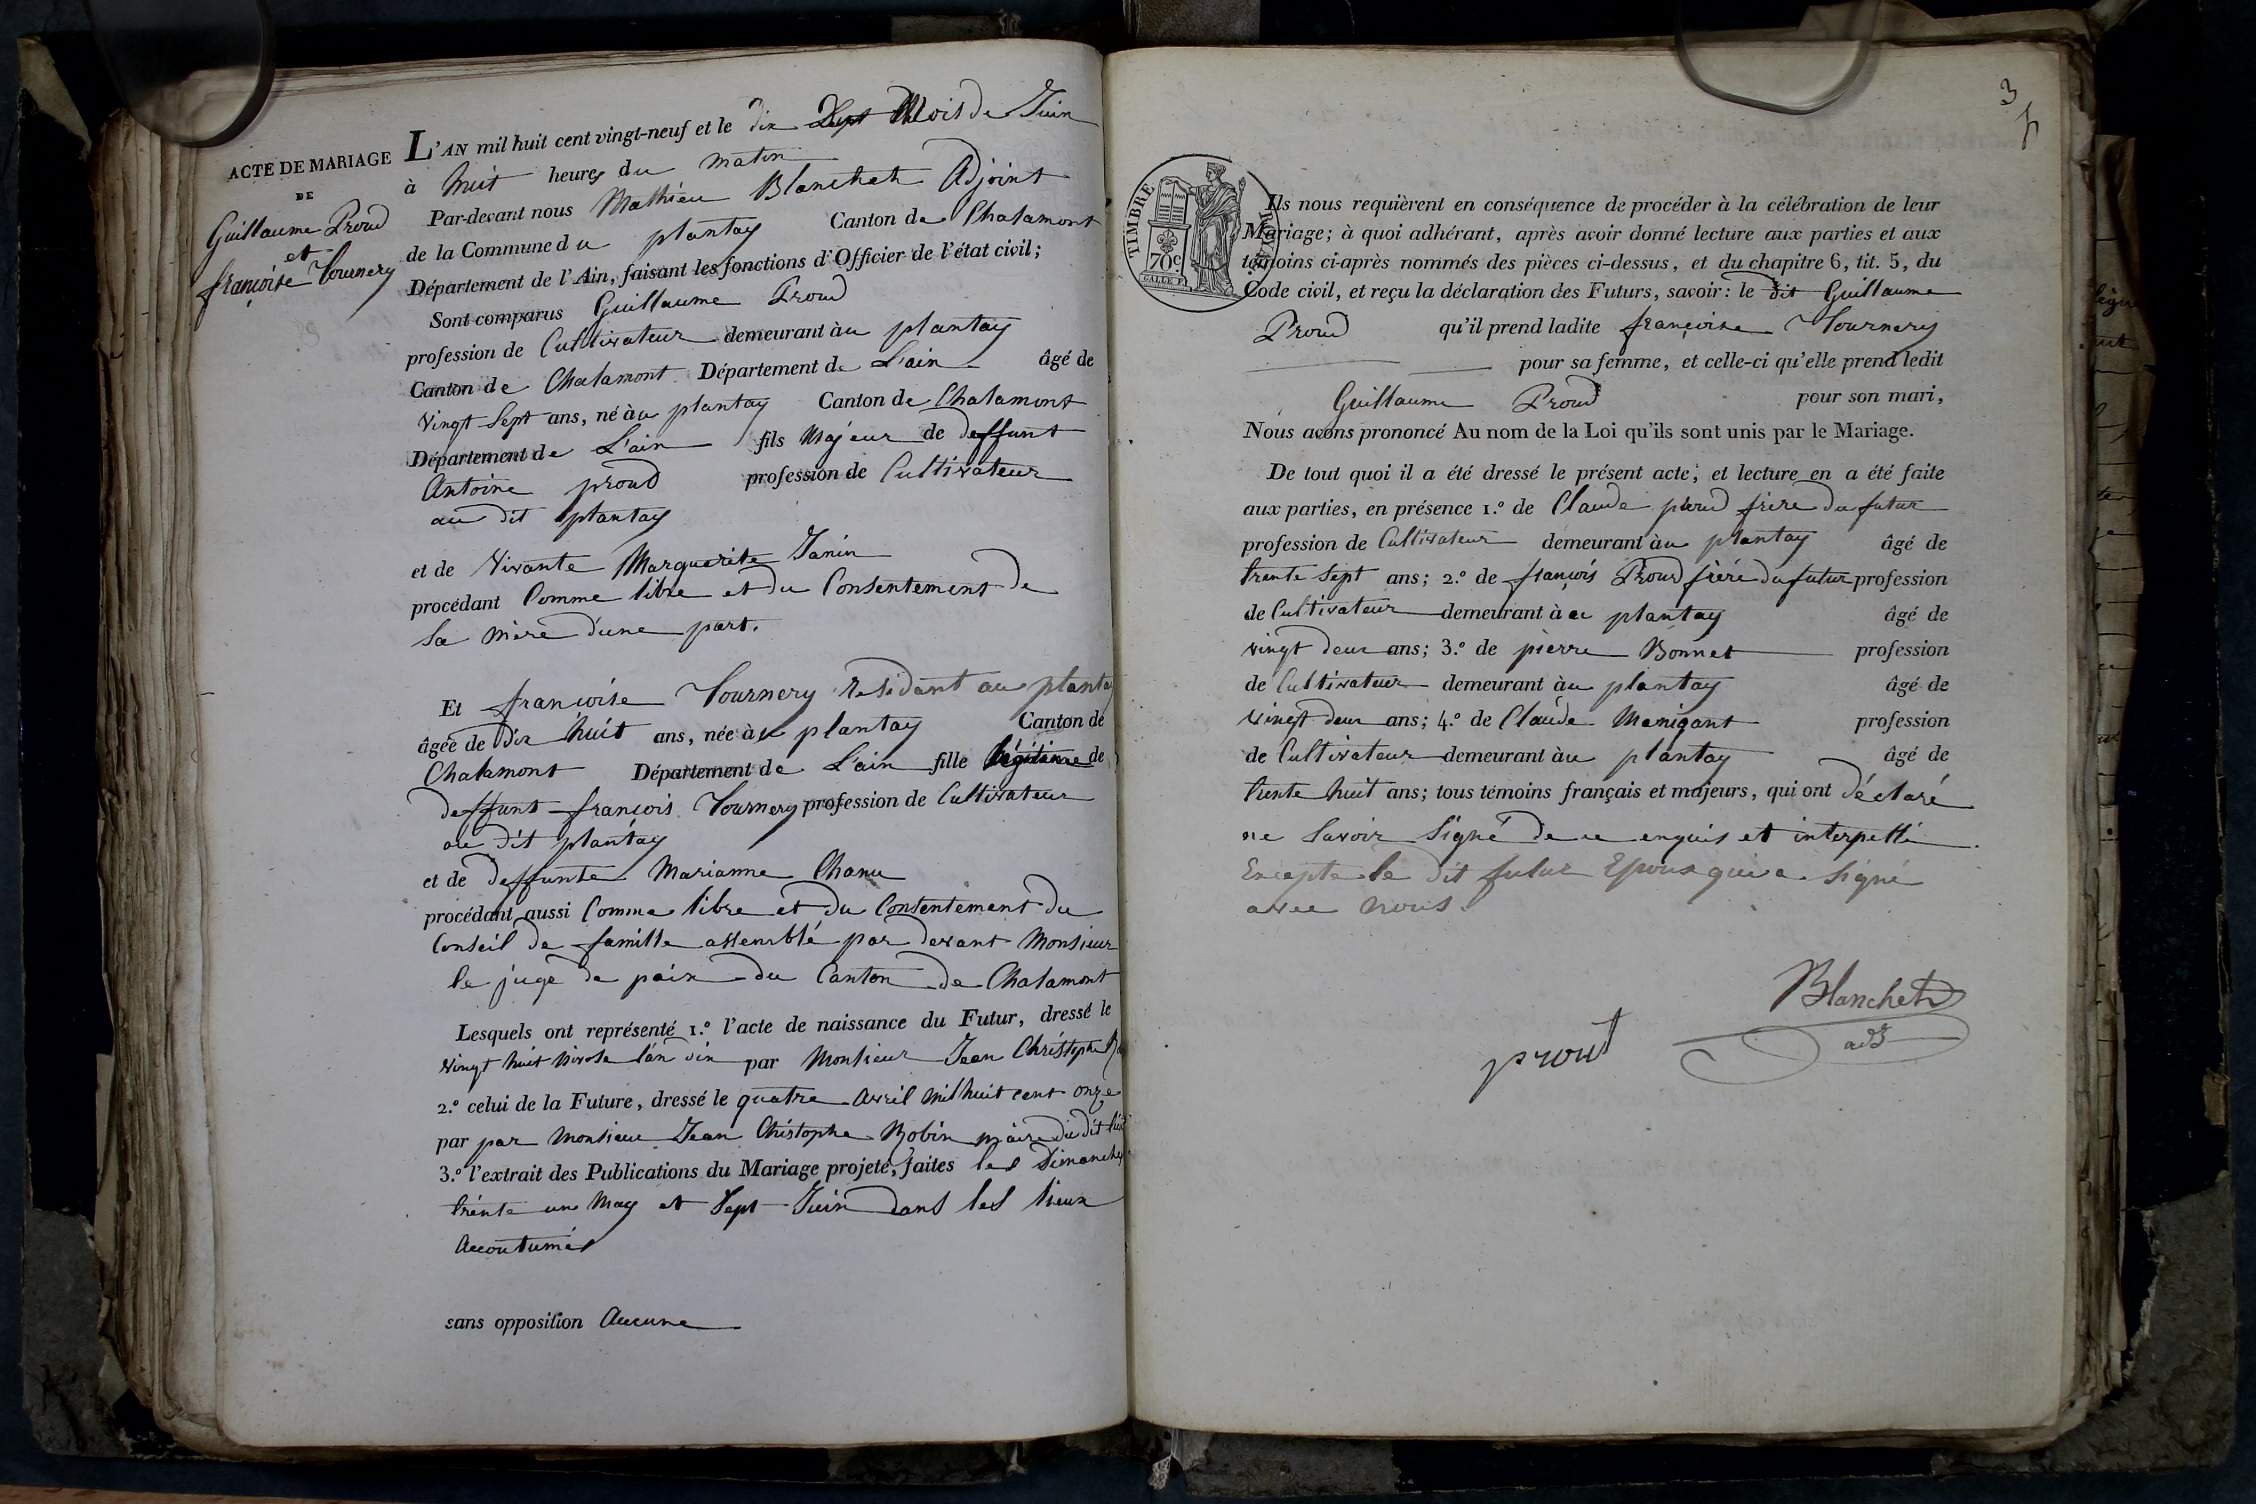 ACTE DE MARIAGE
DE
Guillaume Proud
et
françoise Tournery
L'AN mil huit cent vingt-neuf et le dix Sept Mois de Juin
à huit heures du matin
Par-devant nous Mathieu Blanchet Adjoint
de la Commune du plantay Canton de Chalamont
Département de l'Ain, faisant les fonctions d'Officier de l'état civil;
Sont comparus Guillaume Proud
profession de Cultivateur demeurant àu plantay
Canton de Chalamont Département de L'ain âgé de
vingt Sept ans, né àu plantay Canton de Chalamont
Département de L'ain fils Majeur de deffunt
Antoine proud profession de Cultivateur
au dit plantay
et de Vivante Marguerite Janin
procédant Comme libre et du Consentement de
Sa mère d'une part.
Et françoise Tournery residant au plantay
âgée de dix huit ans, née àu plantay Canton de
Chalamont Département de L'ain fille légitime de
deffunt françois Tournery profession de Cultivateur
au dit plantay
et de deffunte Marianne Chanu
procédant aussi Comme libre et du Consentement du
Conseil de famille assemblé par devant Monsieur
le juge de paix du Canton de Chalamont
Lesquels ont représenté 1.º l'acte de naissance du Futur, dressé le
vingt huit nivose l'an dix par Monsieur Jean Christophe
2.º celui de la Future, dressé le quatre avril mil huit cent onze
par par Monsieur Jean Christophe Robin maire du dit lieu
3.º l'extrait des Publications du Mariage projeté, faites les Dimanches
trente un May et Sept Juin dans les lieux
accoutumés
sans opposition Aucune
3
TIMBRE ROYAL
70c
Ils nous requièrent en conséquence de procéder à la célébration de leur
Mariage; à quoi adhérant, après avoir donné lecture aux parties et aux
témoins ci-après nommés des pièces ci-dessus, et du chapitre 6, tit. 5, du
Code civil, et reçu la déclaration des Futurs, savoir: le dit Guillaume
Proud qu'il prend ladite françoise Tournery
pour sa femme, et celle-ci qu'elle prend ledit
Guillaume Proud pour son mari,
Nous avons prononcé Au nom de la Loi qu'ils sont unis par le Mariage.
De tout quoi il a été dressé le présent acte; et lecture en a été faite
aux parties, en présence 1.º de Claude proud frère du futur
profession de Cultivateur demeurant àu plantay âgé de
trente Sept ans; 2.º de françois Proud frère du futur profession
de Cultivateur demeurant àu plantay âgé de
vingt deux ans; 3.º de pierre Bonnet profession
de Cultivateur demeurant àu plantay âgé de
vingt deux ans; 4.º de Claude Manigant profession
de Cultivateur demeurant àu plantay âgé de
trente huit ans; tous témoins français et majeurs, qui ont déclaré
ne Savoir Signé de ce enquis et interpellé
Excepte le dit futur Epoux qui a Signé
avec nous.
Blanchet
adj
prout